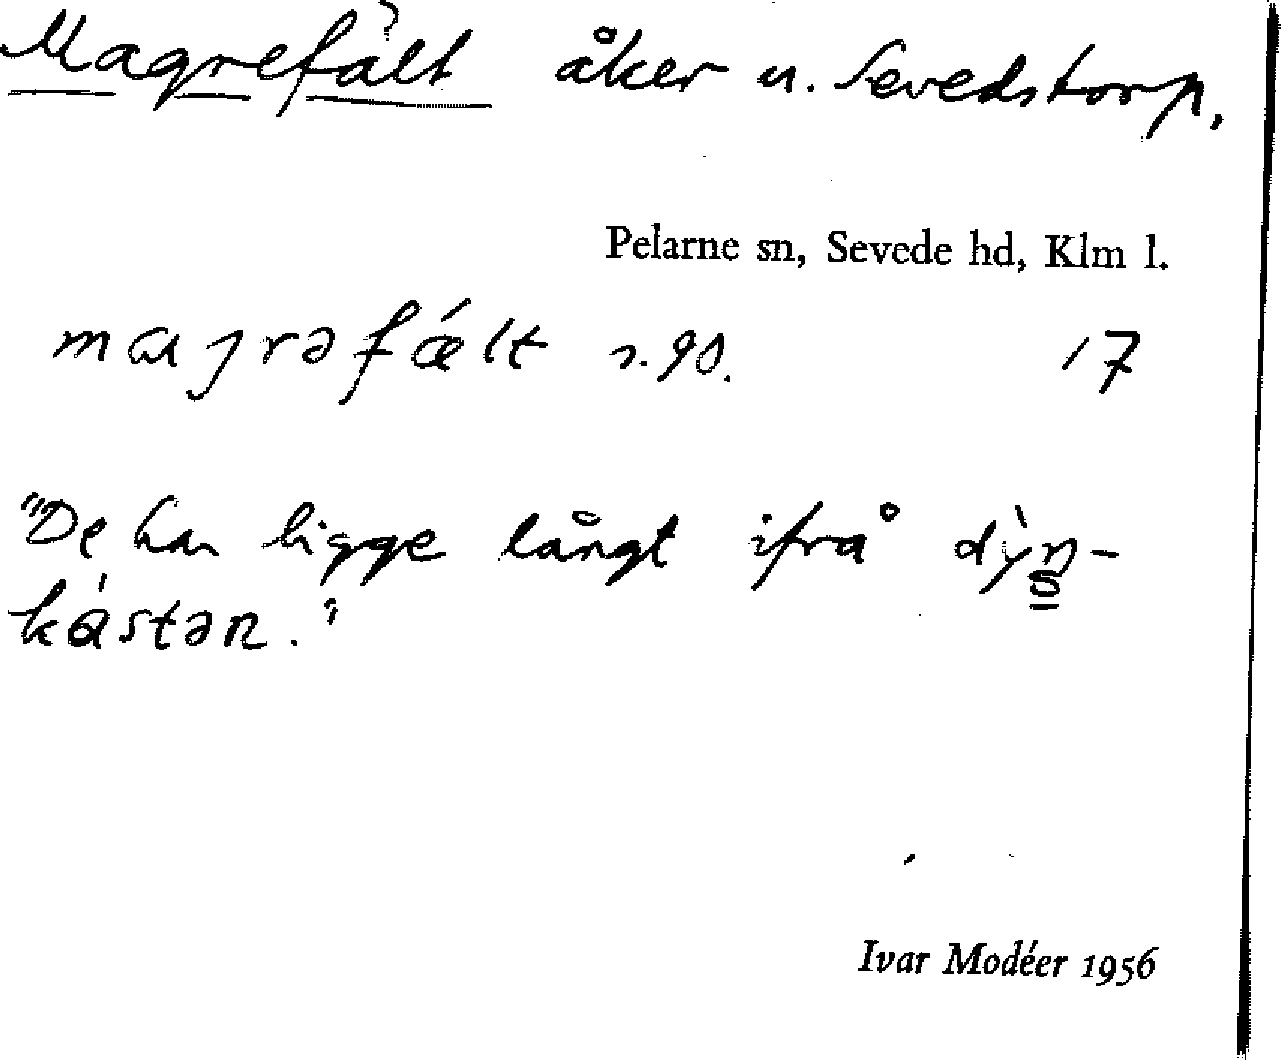 Magrefält åker u. Sevedstorp.
Pelarne sn, Sevede hd, Klm l.
maɡrəfǽlt s. 90. 17
"De har ligge långt ifrå dỳn-
kástən."
Ivar Modéer 1956